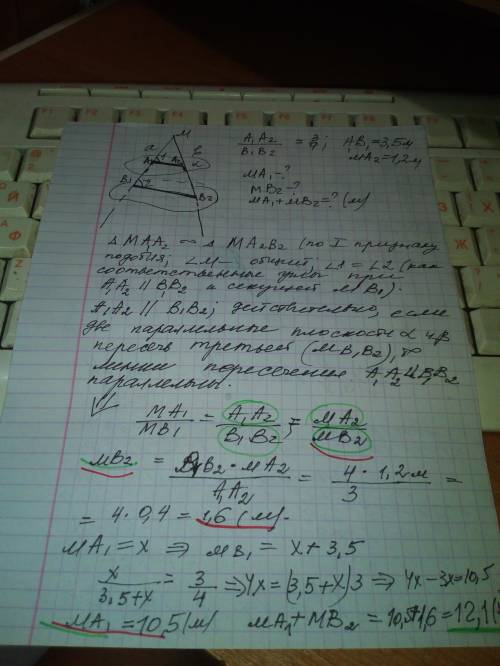 M
a b
A₁ 1 A₂ α
B₁ 2 B₂
A₁A₂/B₁B₂ = 3/4; A₁B₁=3,5м
MA₂=1,2м
MA₁-?
MB₂-?
MA₁+MB₂=? (м)
Δ MA₁A₂ ∾ Δ MA₂B₂ (по I признаку
подобия; ∠M – общий; ∠1 = ∠2 (как
соответственные углы при
A₁A₂ || B₁B₂ и секущей MB₁).
A₁A₂ || B₁B₂; действительно, если
две параллельные плоскости α и β
пересеч третьей (MB₁B₂), то
линии пересечения A₁A₂ и B₁B₂
параллельны.
MA₁/MB₁ = A₁A₂/B₁B₂ = MA₂/MB₂
MB₂ = B₁B₂·MA₂/A₁A₂ = 4·1,2м/3 =
= 4·0,4 = 1,6 (м).
MA₁ = x ⇒ MB₁ = x + 3,5
x/3,5+x = 3/4 ⇒ 4x = (3,5+x)3 ⇒ 4x-3x=10,5
MA₁ = 10,5(м) MA₁+MB₂ = 10,5+1,6 = 12,1(